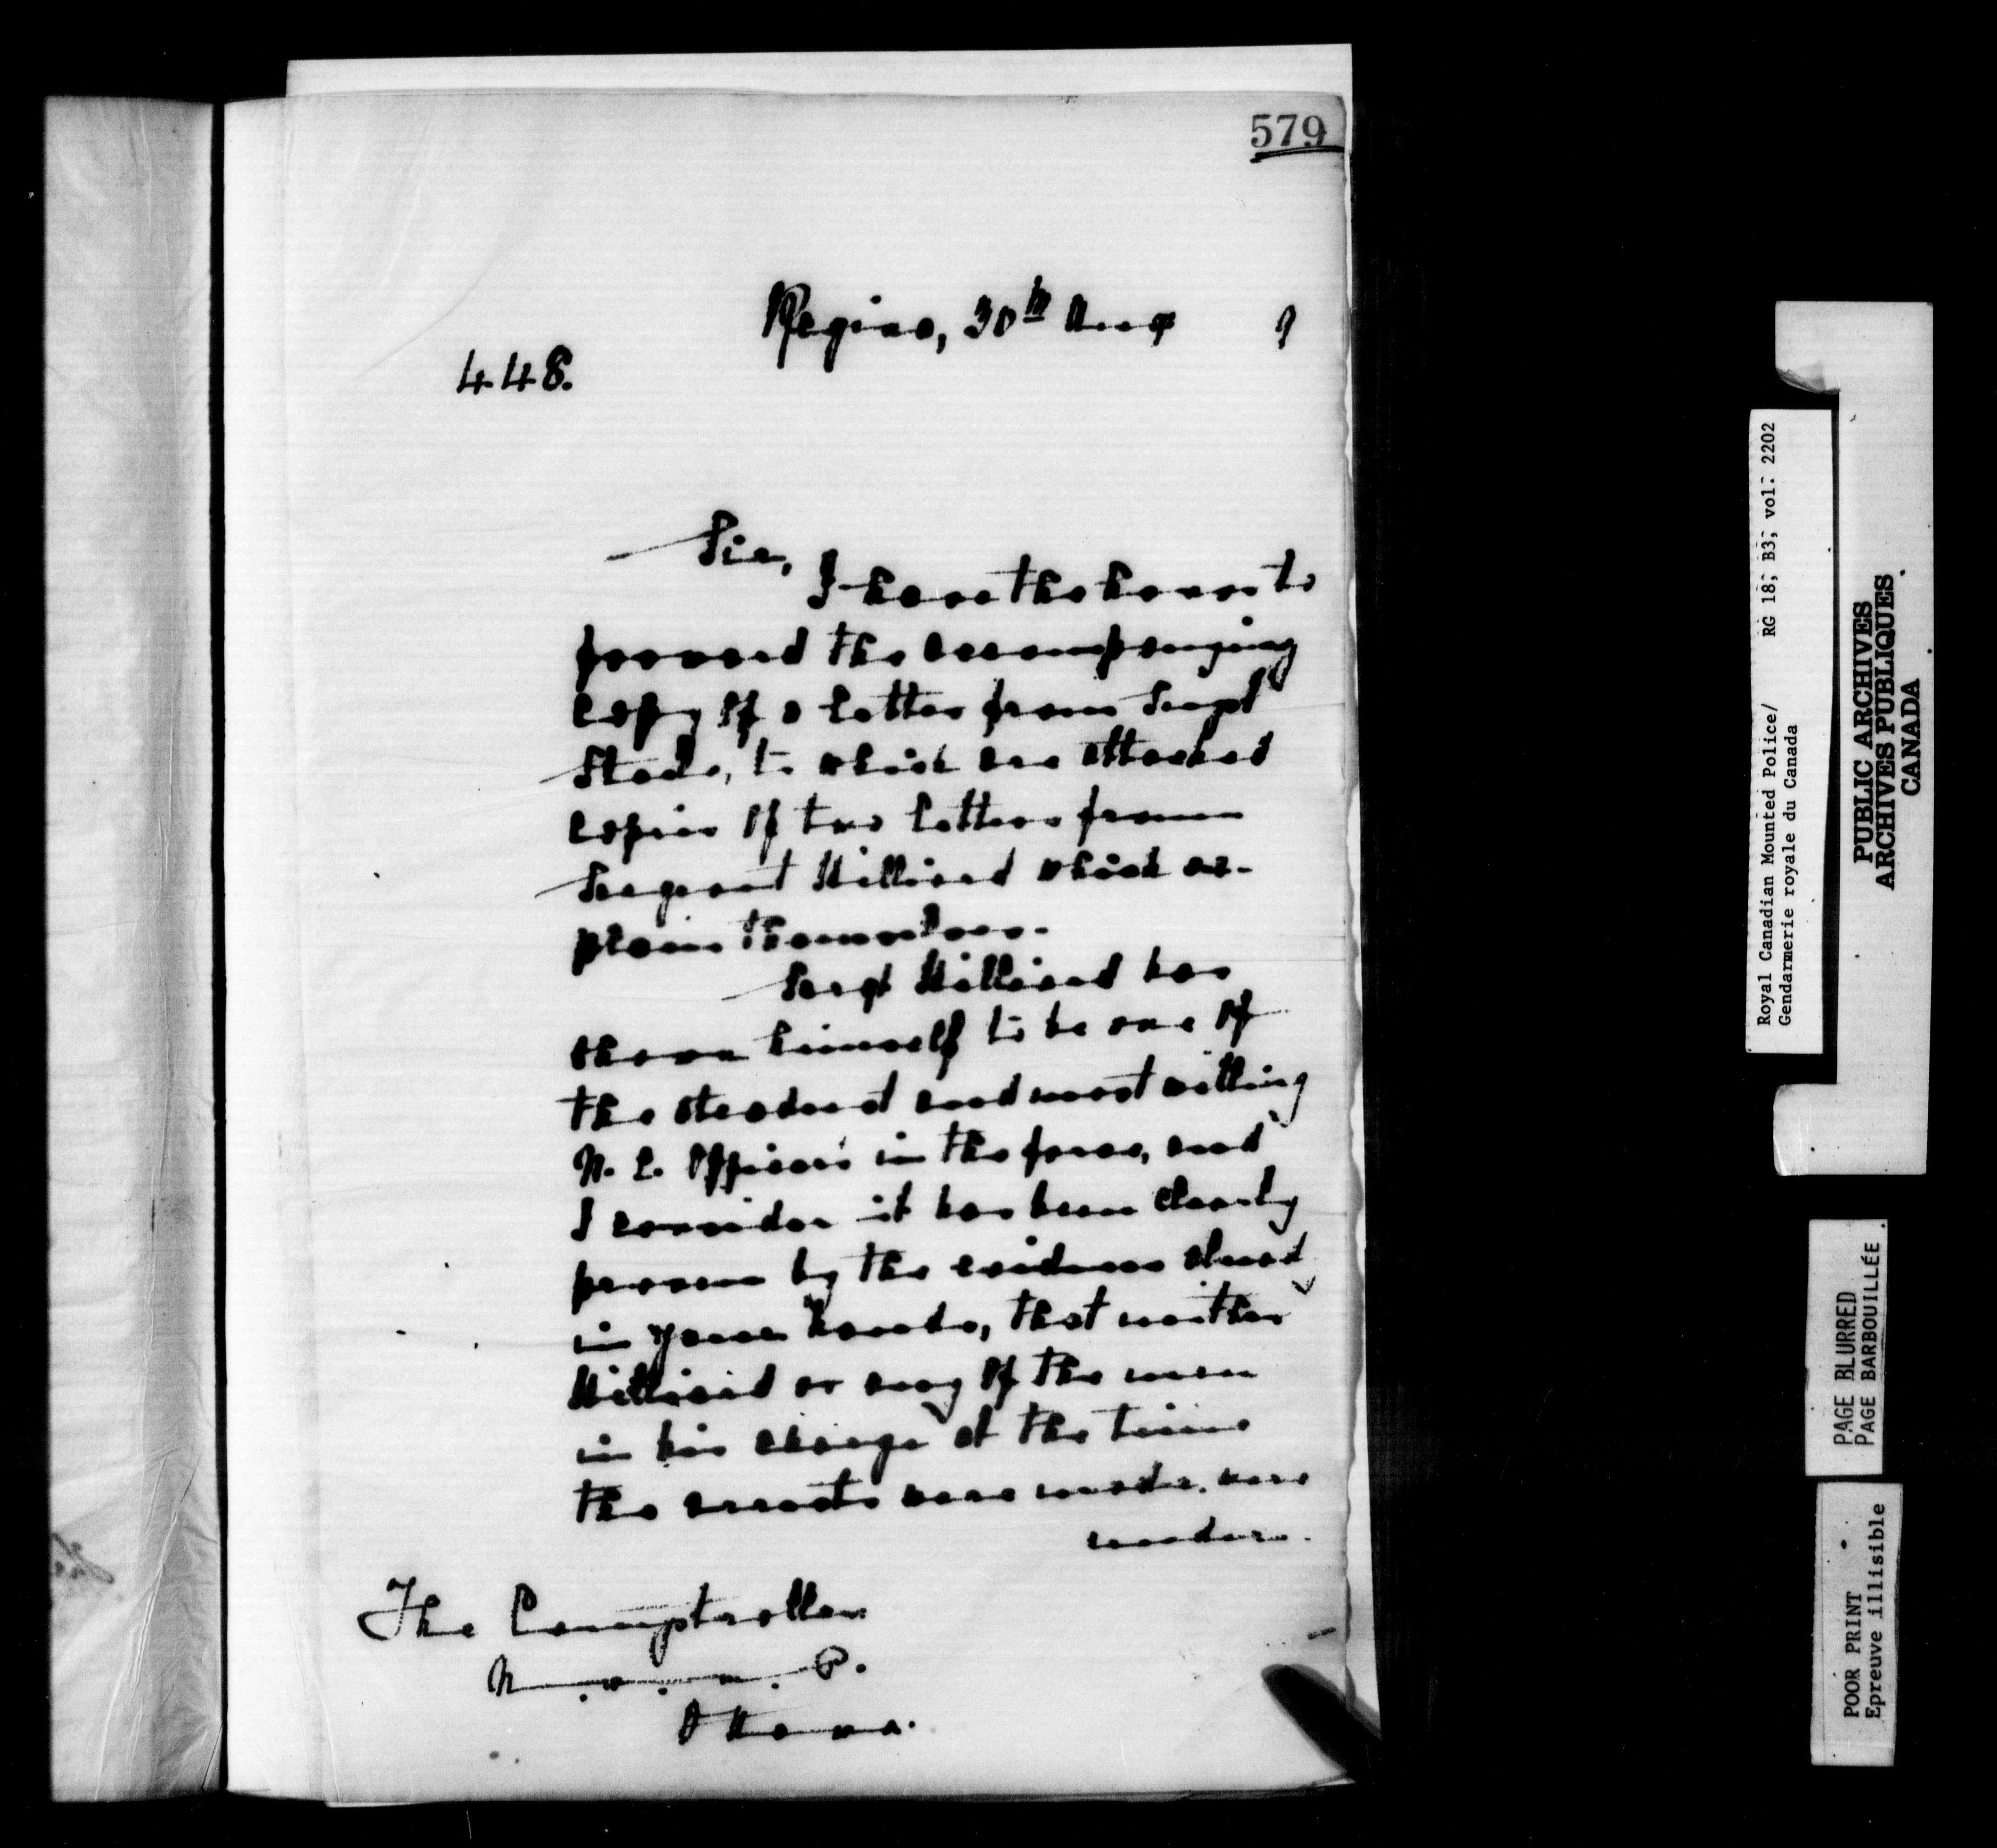 579
Regina, 30th Aug 9
448.
Sir,
I have the honor to
forward the accompanying
copy of a letter from Supt
Steele, to which are attached
copies of two letters from
Sergeant Hilliard which ex-
plain themselves.
Sergt Hilliard has
shown himself to be one of
the steadiest and most willing
N. C. Officers in the force, and
I consider it has been clearly
proven by the evidence already
in your hands, that neither
Hilliard or any of the men
in his charge at the time
the arrests were made, were
under.
The Comptroller
N. W. M. P.
Ottawa.
Royal Canadian Mounted Police/ RG 18, B3, vol. 2202
Gendarmerie royale du Canada
PUBLIC ARCHIVES
ARCHIVES PUBLIQUES
CANADA
PAGE BLURRED
PAGE BARBOUILLÉE
POOR PRINT
Epreuve illisible